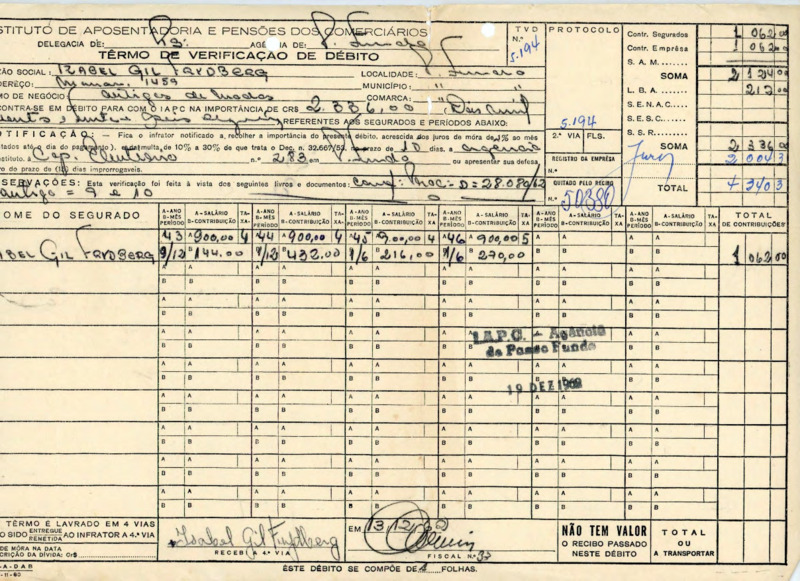 STITUTO DE APOSENTADORIA E PENSÕES DOS COMERCIÁRIOS
DELEGACIA DE: AGÊNCIA DE: P. Fundo
TÊRMO DE VERIFICAÇÃO DE DÉBITO
TVD
N.º 5.194
PROTOCOLO
ZÃO SOCIAL: IZABEL GIL FRYDBERG LOCALIDADE: P. Fundo
DEREÇO: 1459 MUNICÍPIO: " "
MO DE NEGÓCIO: Artigos de Modas COMARCA: " "
CONTRA-SE EM DÉBITO PARA COM O IAPC NA IMPORTÂNCIA DE CR$ 2.336,00 (Dois mil
REFERENTES AOS SEGURADOS E PERÍODOS ABAIXO:
NOTIFICAÇÃO: - Fica o infrator notificado a recolher a importância do presente débito, acrescida dos juros de móra de 1% ao mês
tados até o dia do pagamento e multa de 10% a 30% de que trata o Dec. n. 32.667/53, no prazo de 10 dias, a agencia
Instituto, à Cap. Eleutério n.º 283 em P. Fundo ou apresentar sua defesa
ro do prazo de dias improrrogaveis.
SERVAÇÕES: Esta verificação foi feita à vista dos seguintes livros e documentos: conf. Proc. D=28.080/62
artigo = 9 e 10
5.194
2.ª VIA FLS.
REGISTRO DA EMPRÊSA
QUITADO PELO RECIBO
N.º 50380
Contr. Segurados 1 062 00
Contr. Emprêsa 1 062 00
S. A. M.
SOMA 2 124 00
L. B. A. 212 00
S. E. N. A. C.
S. E. S. C.
B. S. R.
SOMA 2 336 00
Juros 2 004 3
TOTAL 4 340 3
NOME DO SEGURADO
A-ANO B-MÊS PERÍODO A-SALÁRIO B-CONTRIBUIÇÃO TA-XA A-ANO B-MÊS PERÍODO A-SALÁRIO B-CONTRIBUIÇÃO TA-XA A-ANO B-MÊS PERÍODO A-SALÁRIO B-CONTRIBUIÇÃO TA-XA A-ANO B-MÊS PERÍODO A-SALÁRIO B-CONTRIBUIÇÃO TA-XA A-ANO B-MÊS PERÍODO A-SALÁRIO B-CONTRIBUIÇÃO TA-XA A-ANO B-MÊS PERÍODO A-SALÁRIO B-CONTRIBUIÇÃO TA-XA
TOTAL DE CONTRIBUIÇÕES
43 900,00 4 44 900,00 4 45 900,00 4 46 900,00 5
ABEL GIL FRYDBERG 9/12 144,00 1/12 432,00 1/6 216,00 1/6 270,00 1 062 00
I.A.P.C. - Agência
de Passo Fundo
19 DEZ 1962
TÊRMO É LAVRADO EM 4 VIAS
DO BIDO ENTREGUE REMETIDA AO INFRATOR A 4.ª VIA
DE MÓRA NA DATA
CRIÇÃO DA DÍVIDA: Cr$
-A-DAB
Izabel Gil Frydberg
RECEBI A 4.ª VIA
EM 13/12/62
FISCAL N.º 37
NÃO TEM VALOR
O RECIBO PASSADO
NESTE DÉBITO
TOTAL
OU
A TRANSPORTAR
ÊSTE DÉBITO SE COMPÕE DE 1 FOLHAS.